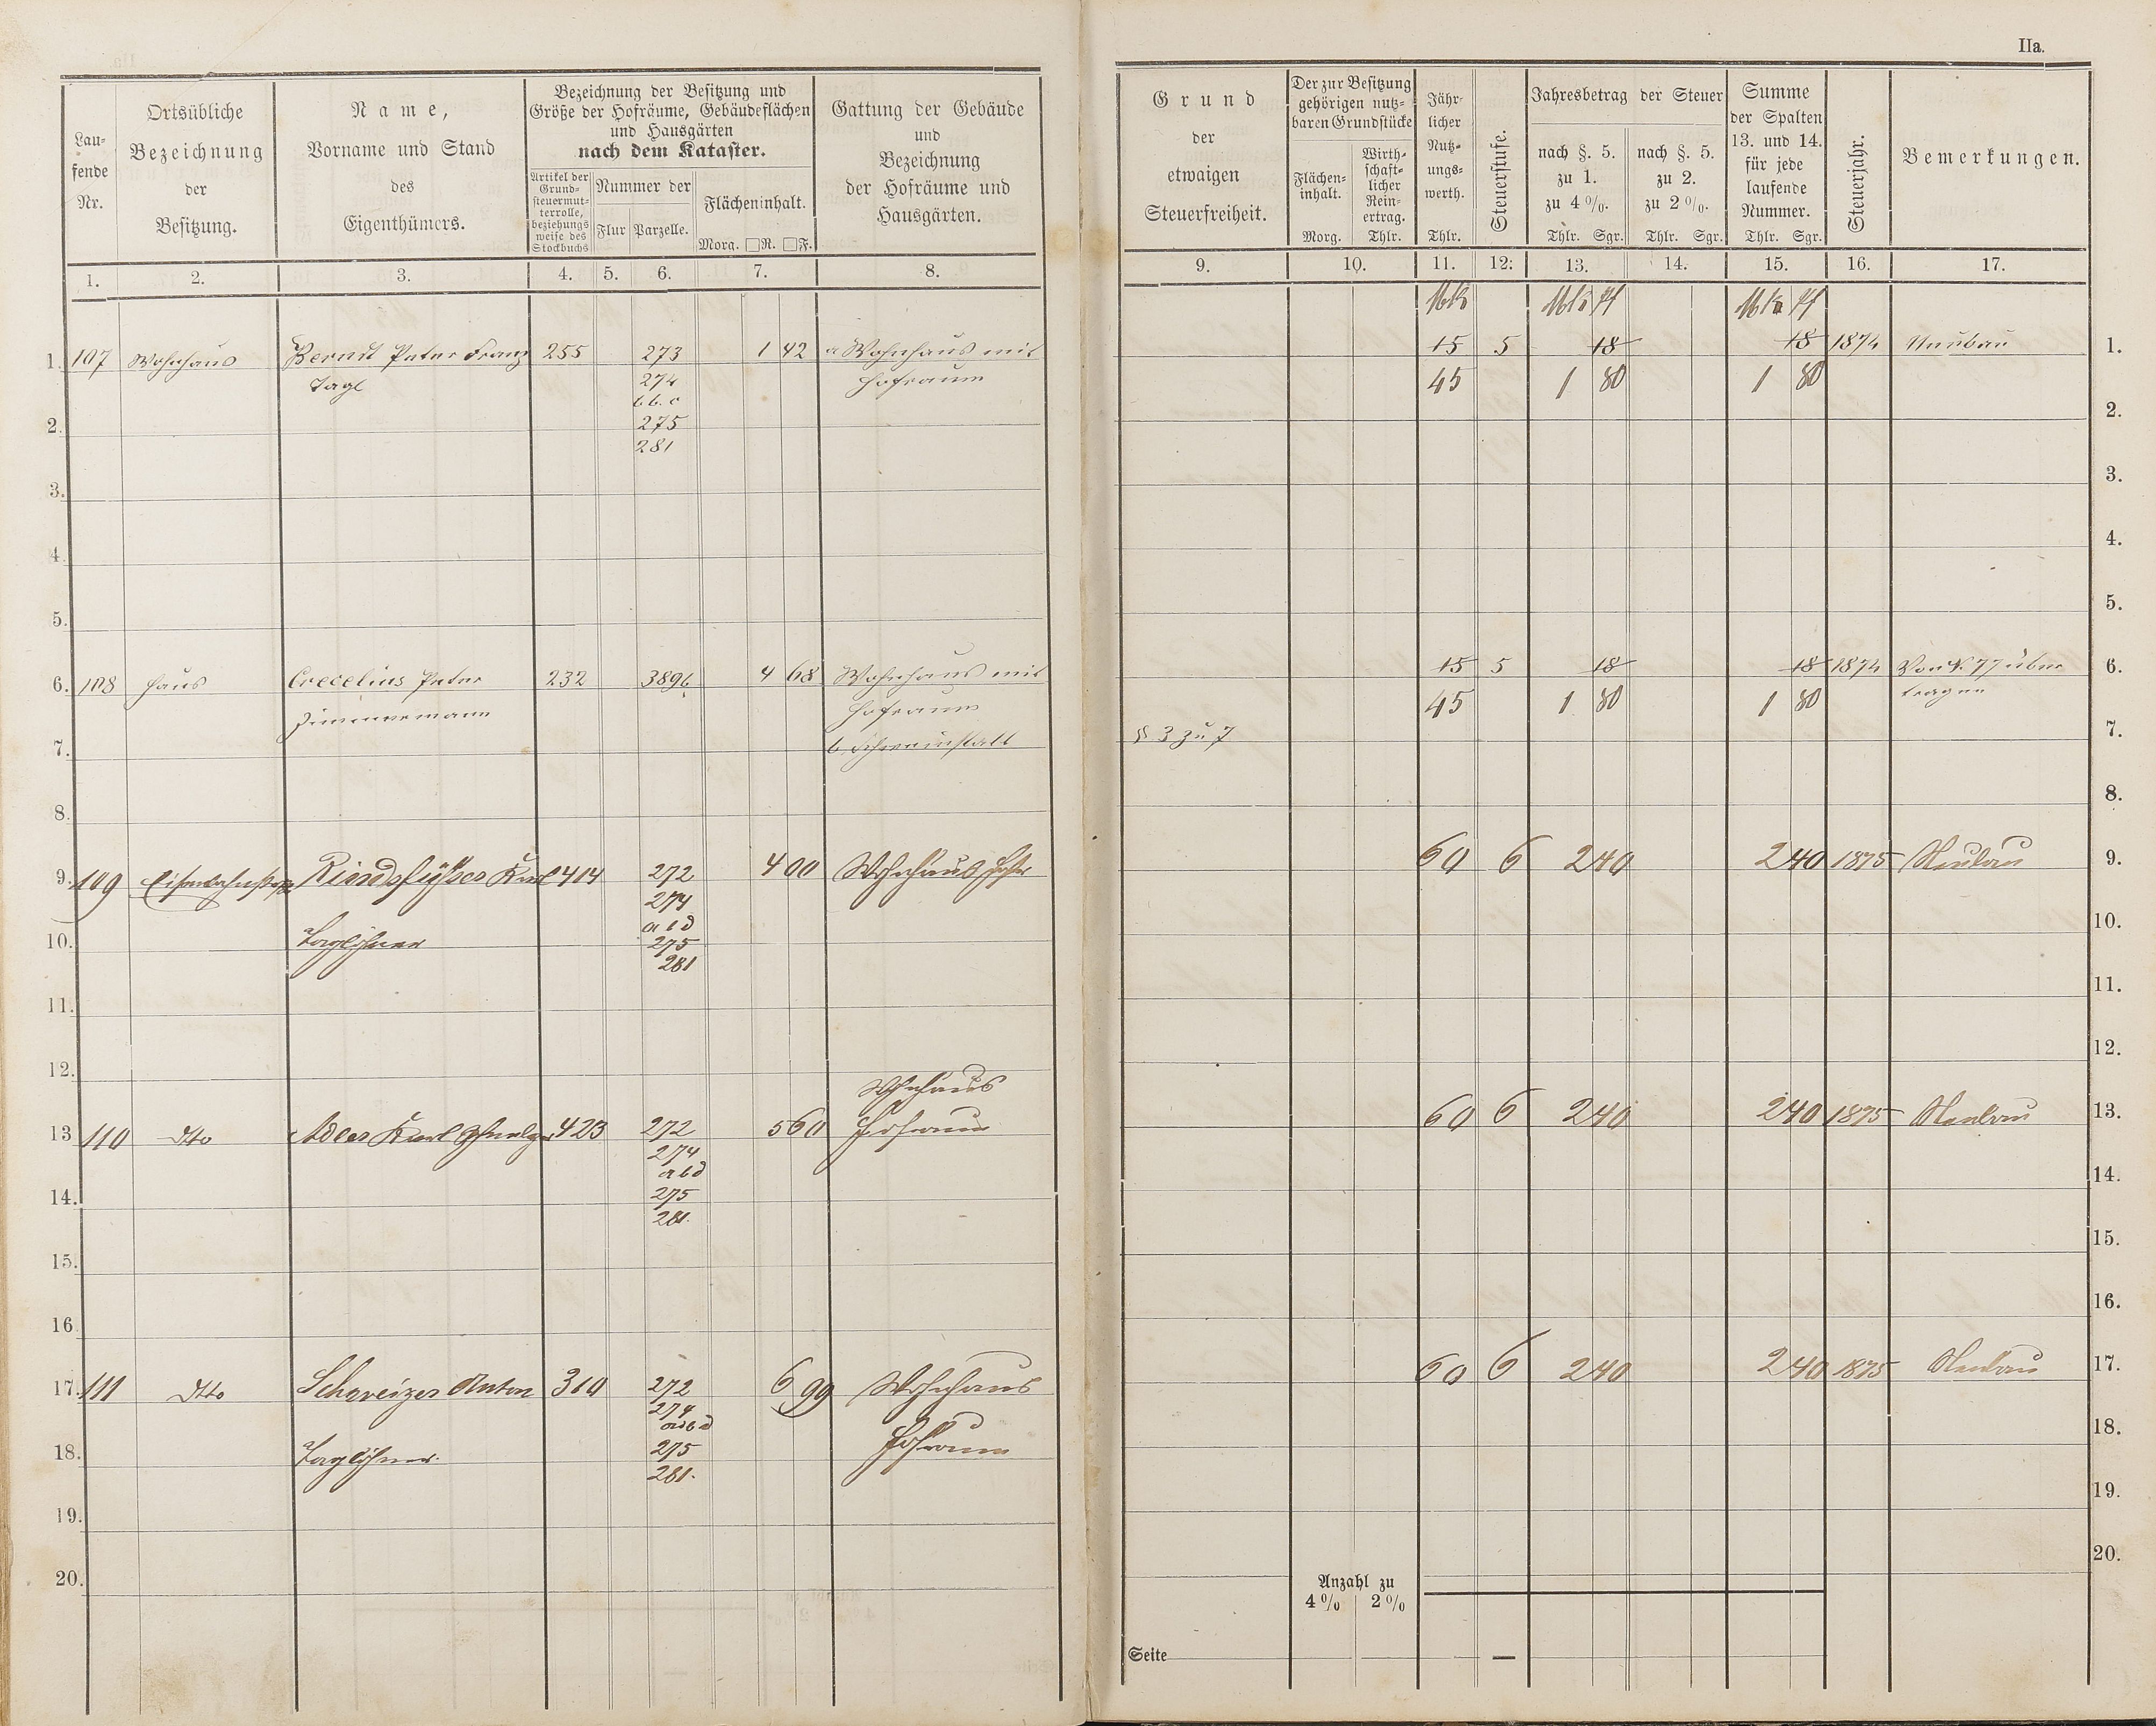 IIa.
Laufende Nr.
Ortsübliche Bezeichnung der Besitzung.
Name, Vorname und Stand des Eigenthümers.
Bezeichnung der Besitzung und Größe der Hofräume, Gebäudeflächen und Hausgärten nach dem Kataster.
Artikel der Grundsteuermutterrolle, beziehungsweise des Stockbuchs
Nummer der
Flur Parzelle.
Flächeninhalt.
Morg. □R. □F.
Gattung der Gebäude und Bezeichnung der Hofräume und Hausgärten.
Grund der etwaigen Steuerfreiheit.
Der zur Besitzung gehörigen nutzbaren Grundstücke
Flächeninhalt. Morg.
Wirthschaftlicher Reinertrag. Thlr.
Jährlicher Nutzungswerth. Thlr.
Steuerstufe.
Jahresbetrag der Steuer
nach §. 5. zu 1. zu 4 %. Thlr. Sgr.
nach §. 5. zu 2. zu 2 %. Thlr. Sgr.
Summe der Spalten 13. und 14. für jede laufende Nummer. Thlr. Sgr.
Steuerjahr.
Bemerkungen.
1. 2. 3. 4. 5. 6. 7. 8. 9. 10. 11. 12. 13. 14. 15. 16. 17.
Mk Mk Pf Mk Pf
1. 107 Wohnhaus Berndt Peter Franz 255 273 1 42 a Wohnhaus mit 15 5 18 18 1874 Neubau 1.
Tagl 274 Hofraum 45 1 80 1 80
b b. c
2. 275 2.
281
3. 3.
4. 4.
5. 5.
6. 108 Haus Crecelius Peter 232 389b 4 68 Wohnhaus mit 15 5 18 18 1874 Von N. 77 über 6.
Zimmermann Hofraum 45 1 80 1 80 tragen
7. b Schweinstall § 3 zu 7 7.
8. 8.
9. 109 Eisenbahnstraße Karl 414 272 4 00 Wohnhaus Hofr 60 6 2 40 2 40 1875 Neubau 9.
274
a b d
10. Taglöhner 275 10.
281
11. 11.
12. 12.
Wohnhaus
13. 110 dtto Adler Karl 423 272 5 60 Hofraum 60 6 2 40 2 40 1875 Neubau 13.
274
a b d
14. 275 14.
281.
15. 15.
16. 16.
17. 111 dtto Schweizer Anton 310 272 6 99 Wohnhaus 60 6 2 40 2 40 1875 Neubau 17.
274
18. Taglöhner. 275 Hofraum 18.
281.
19. 19.
20. 20.
Anzahl zu
4 % 2 %
Seite —